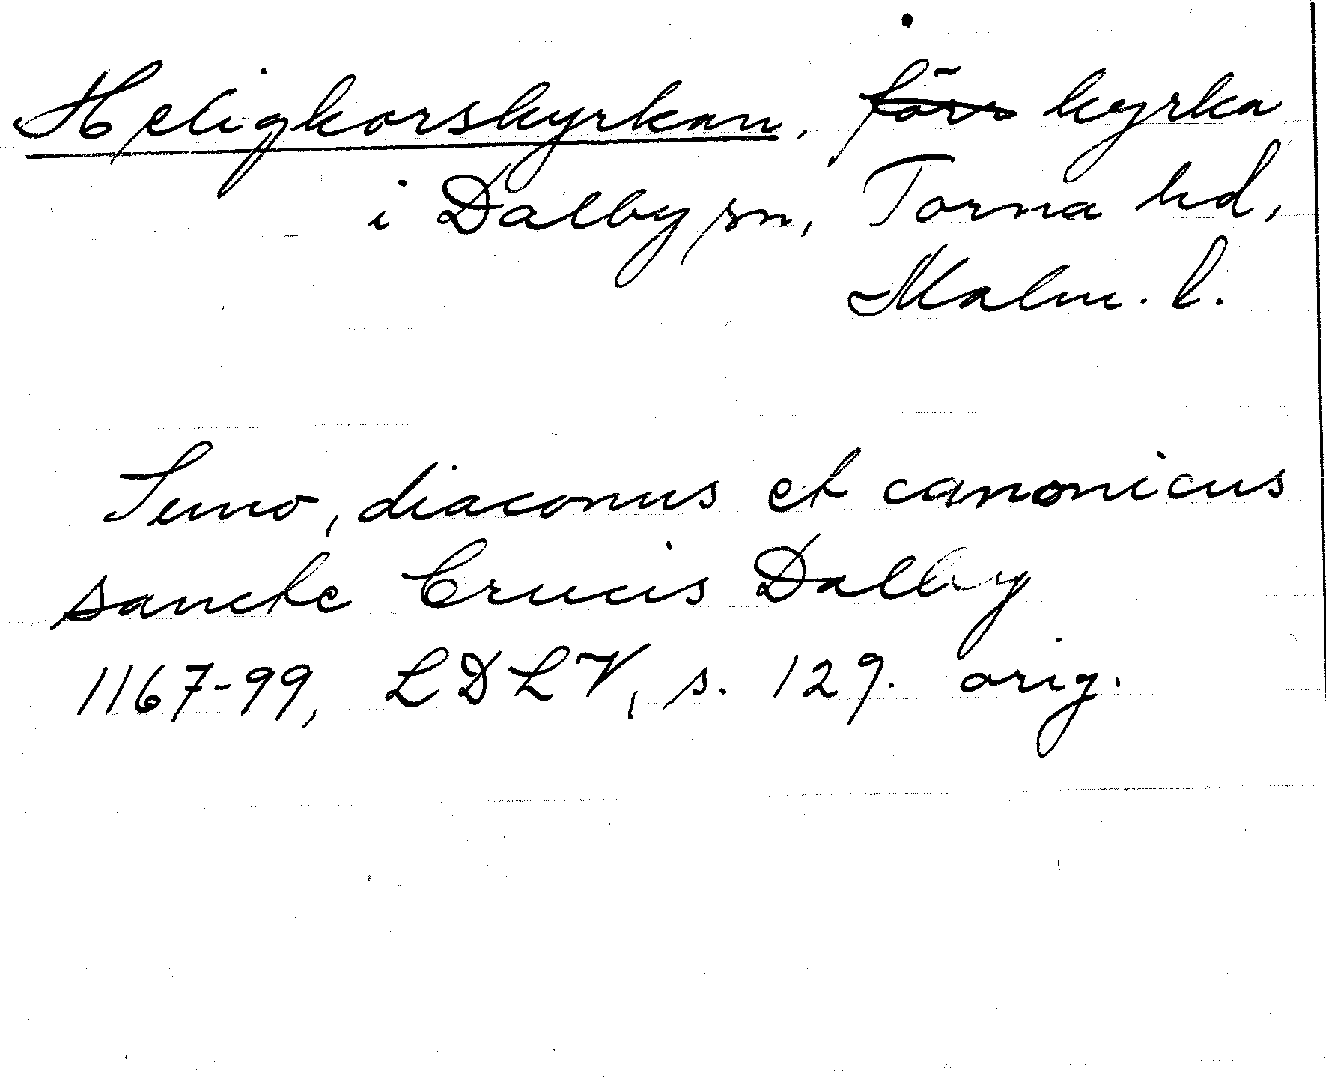 Heligkorskyrkan, förs kyrka
i Dalby sn, Torna hd,
Malm. l.
Suno, diaconus et canonicus
sancte Crucis Dalby
1167-99, LDLV, s. 129. orig.